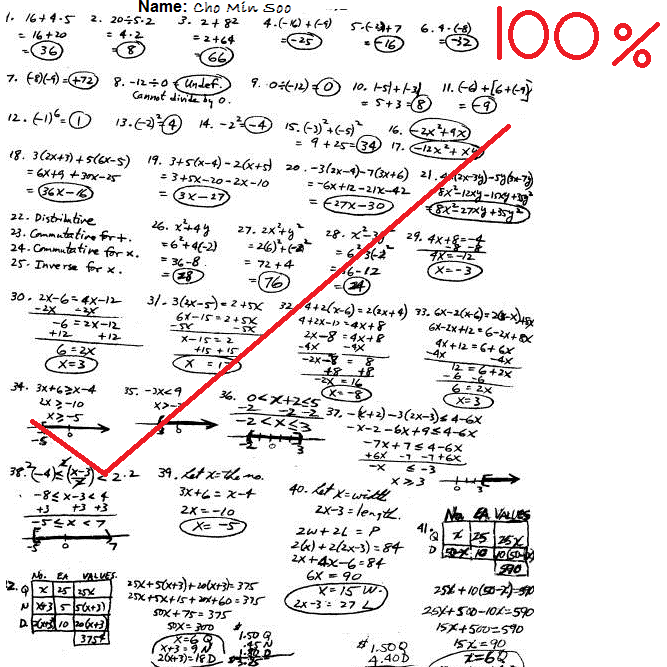 Name: Cho Min Soo
100%
1. 16+4·5 2. 20÷5·2 3. 2+8² 4. (-16)+(-9) 5. (-23)+7 6. 4·(-8)
= 16+20 = 4·2 = 2+64 = -25 = -16 = -32
= 36 = 8 = 66
7. (-8)(-9) = +72 8. -12÷0 = Undef. 9. 0÷(-12) = 0 10. |-5|+|-3| 11. (-6)+[6+(-9)]
Cannot divide by 0. = 5+3 = 8 = -9
12. (-1)⁶ = 1 13. (-2)² = 4 14. -2² = -4 15. (-3)²+(-5)² 16. -2x²+9x
= 9+25 = 34 17. -12x²+xy
18. 3(2x+3)+5(6x-5) 19. 3+5(x-4)-2(x+5) 20. -3(2x-4)-7(3x+6) 21. (2x-3y)-5y(3x-7y)
= 6x+9+30x-25 = 3+5x-20-2x-10 = -6x+12-21x-42 8x²-12xy-15xy+35y²
= 36x-16 = 3x-27 = -27x-30 = 8x²-27xy+35y²
22. Distributive 26. x²+4y 27. 2x²+y² 28. x²-3y² 29. 4x+8=-4
23. Commutative for +. = 6²+4(-2) = 2(6)²+(-2)² -8 -8
24. Commutative for x. = 36-8 = 72+4 = 36-12 4x=-12
25. Inverse for x. = 28 = 76 = 24 x=-3
30. 2x-6=4x-12 31. 3(2x-5)=2+5x 32. 4+2(x-6)=2(2x+4) 33. 6x-2(x-6)=
-2x -2x 6x-15=2+5x 4+2x-12=4x+8 6x-2x+12=6-2x+8x
-6=2x-12 -5x -5x 2x-8=4x+8 4x+12=6+6x
+12 +12 x-15=2 -4x -4x -4x -4x
6=2x +15 +15 -2x-8=8 12=6+2x
x=3 x = +8 +8 -6 -6
-2x=16 6=2x
x=-8 x=3
34. 3x+6≥x-4 35. -3x<9 36. 0<x+2≤5 37. -(x+2)-3(2x-3)≤4-6x
2x≥-10 x>- -2 -2 -2 -x-2-6x+9≤4-6x
x≥-5 -3 0 -2<x≤3 -7x+7≤4-6x
-5 0 +6x -7 -7 +6x
-x ≤ -3
x≥3
38. 2(-4)≤(x-3/2)<2·2 39. Let x=the no. 40. Let x=width
-8≤x-3<4 3x+6=x-4 2x-3=length.
+3 +3 +3 2x=-10 2W+2L=P
-5≤x<7 x=-5 2(x)+2(2x-3)=84
-5 0 7 2x+4x-6=84
6x=90
x=15 W.
2x-3=27 L
41. No. EA VALUES
Q x 25 25x
D 50-x 10 10(50-x)
590
25x+10(50-x)=590
25x+500-10x=590
15x+500=590
15x=90
x=6Q
$1.50Q
4.40D
No. EA VALUES
Q x 25 25x
N x+3 5 5(x+3)
D 10
375¢
25x+5(x+3)+20(x+3)=375
25x+5x+15+20x+60=375
50x+75=375
50x=300
x=6Q
x+3=9N
2(x+3)=18D
$1.50Q